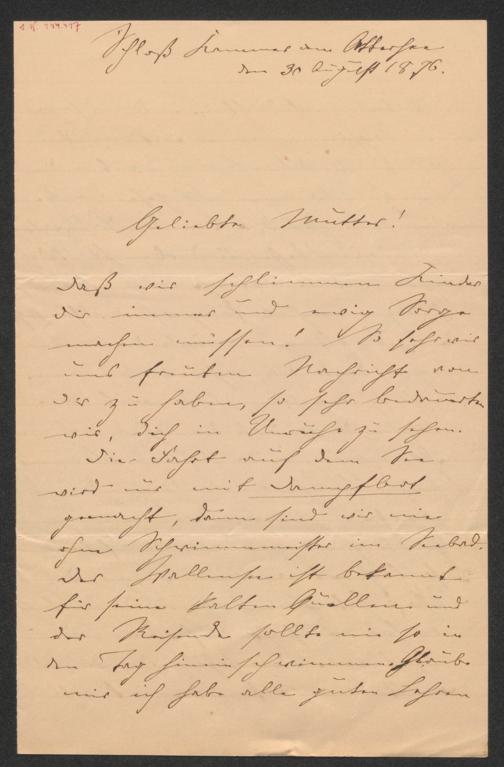 Schloß Kammer am Attersee
den 30 August 1876.
Geliebte Mutter!
Daß wir schlimmen Kinder
dir immer und ewig Sorge
machen müssen! So sehr wir
uns freuten Nachricht von
dir zu haben, so sehr bedauerten
wir, dich in Unruhe zu sehen.
Die Fahrt auf dem See
wird nur mit Dampfboot
gemacht, dann sind wir nie
ohne Schwimmmeister im Seebad.
Der Wallensee ist bekannt
für seine kalten Quellen und
der Reisende sollte nie so in
den Tag hineinschwimmen. Glaube
mir ich habe alle guten Lehren